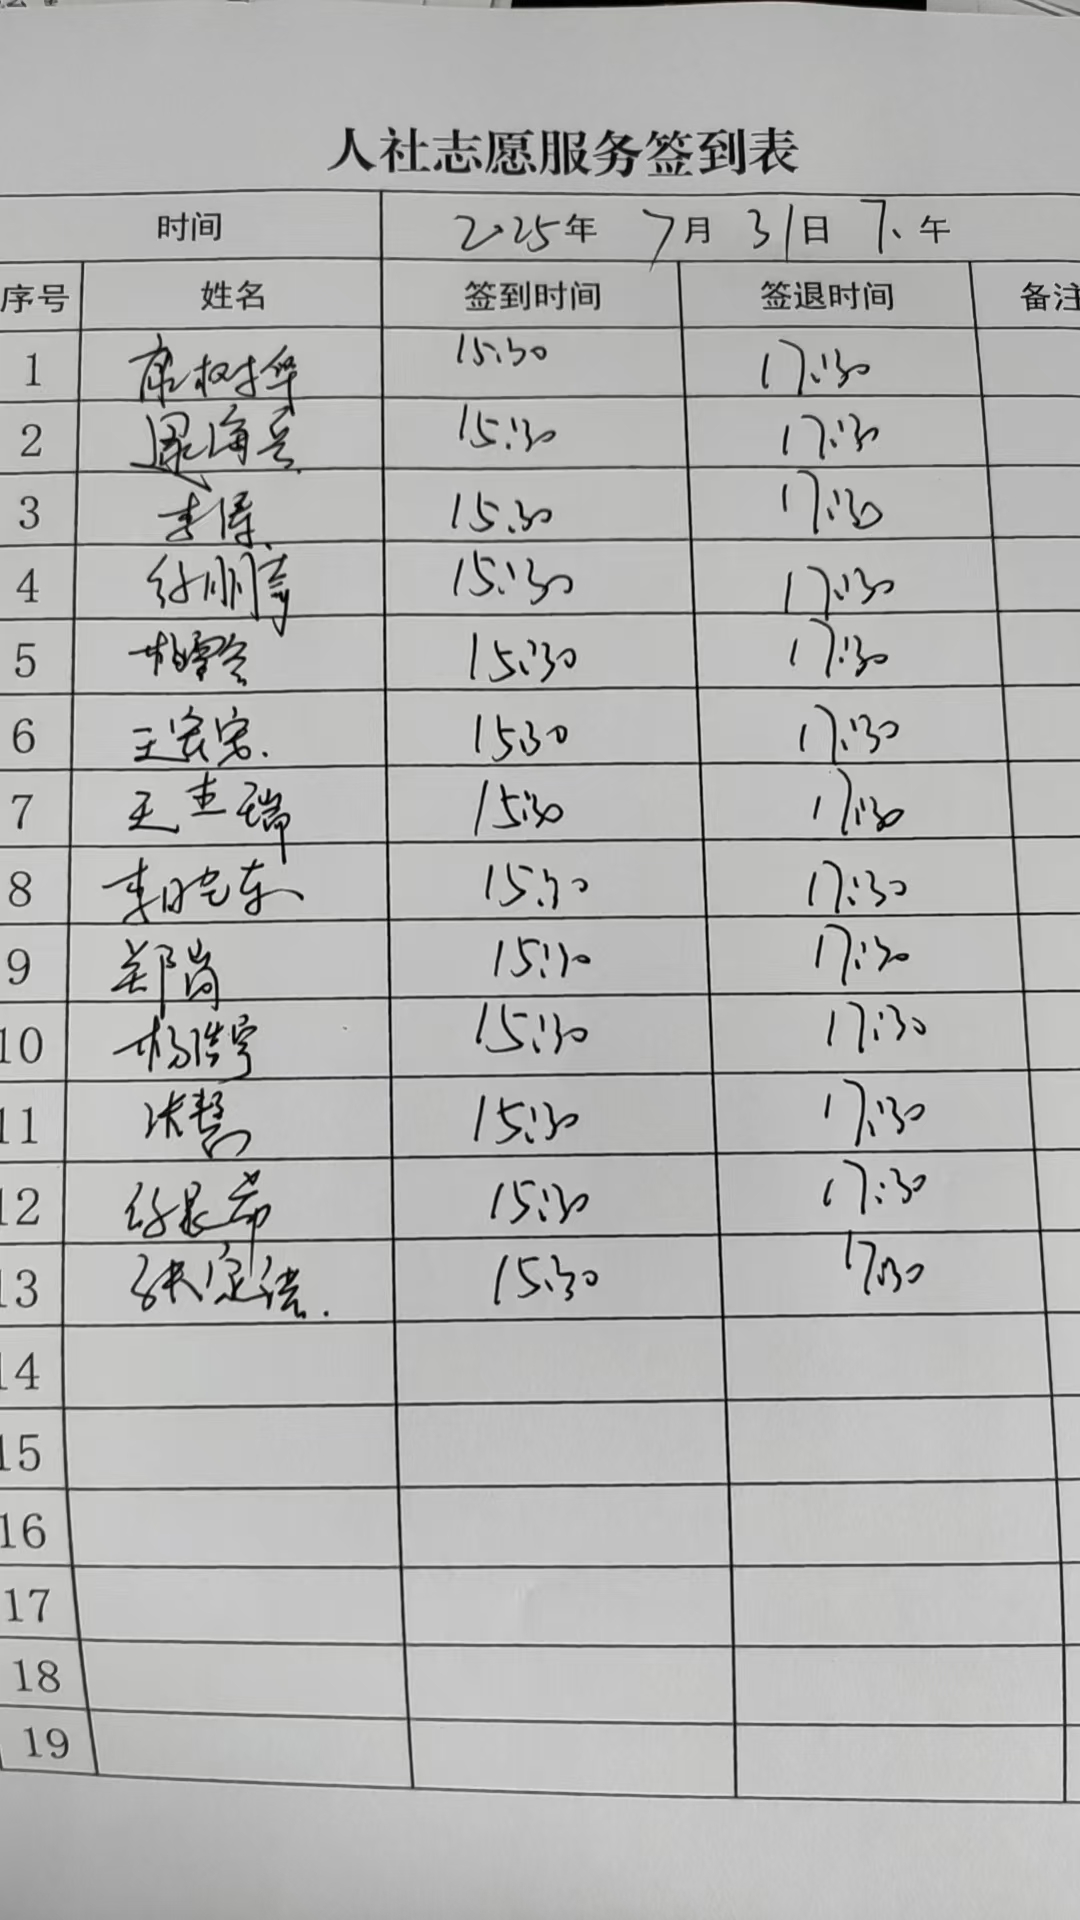 人社志愿服务签到表
时间 2025年 7月 31日 下午
序号 姓名 签到时间 签退时间 备注
1 康树华 15:30 17:30
2 海兵 15:30 17:30
3 李博 15:30 17:30
4 15:30 17:30
5 15:30 17:30
6 王宏宏 15:30 17:30
7 王圭瑞 15:30 17:30
8 李晓东 15:30 17:30
9 郑岗 15:30 17:30
10 杨浩宇 15:30 17:30
11 张慧 15:30 17:30
12 15:30 17:30
13 张定法 15:30 17:30
14
15
16
17
18
19